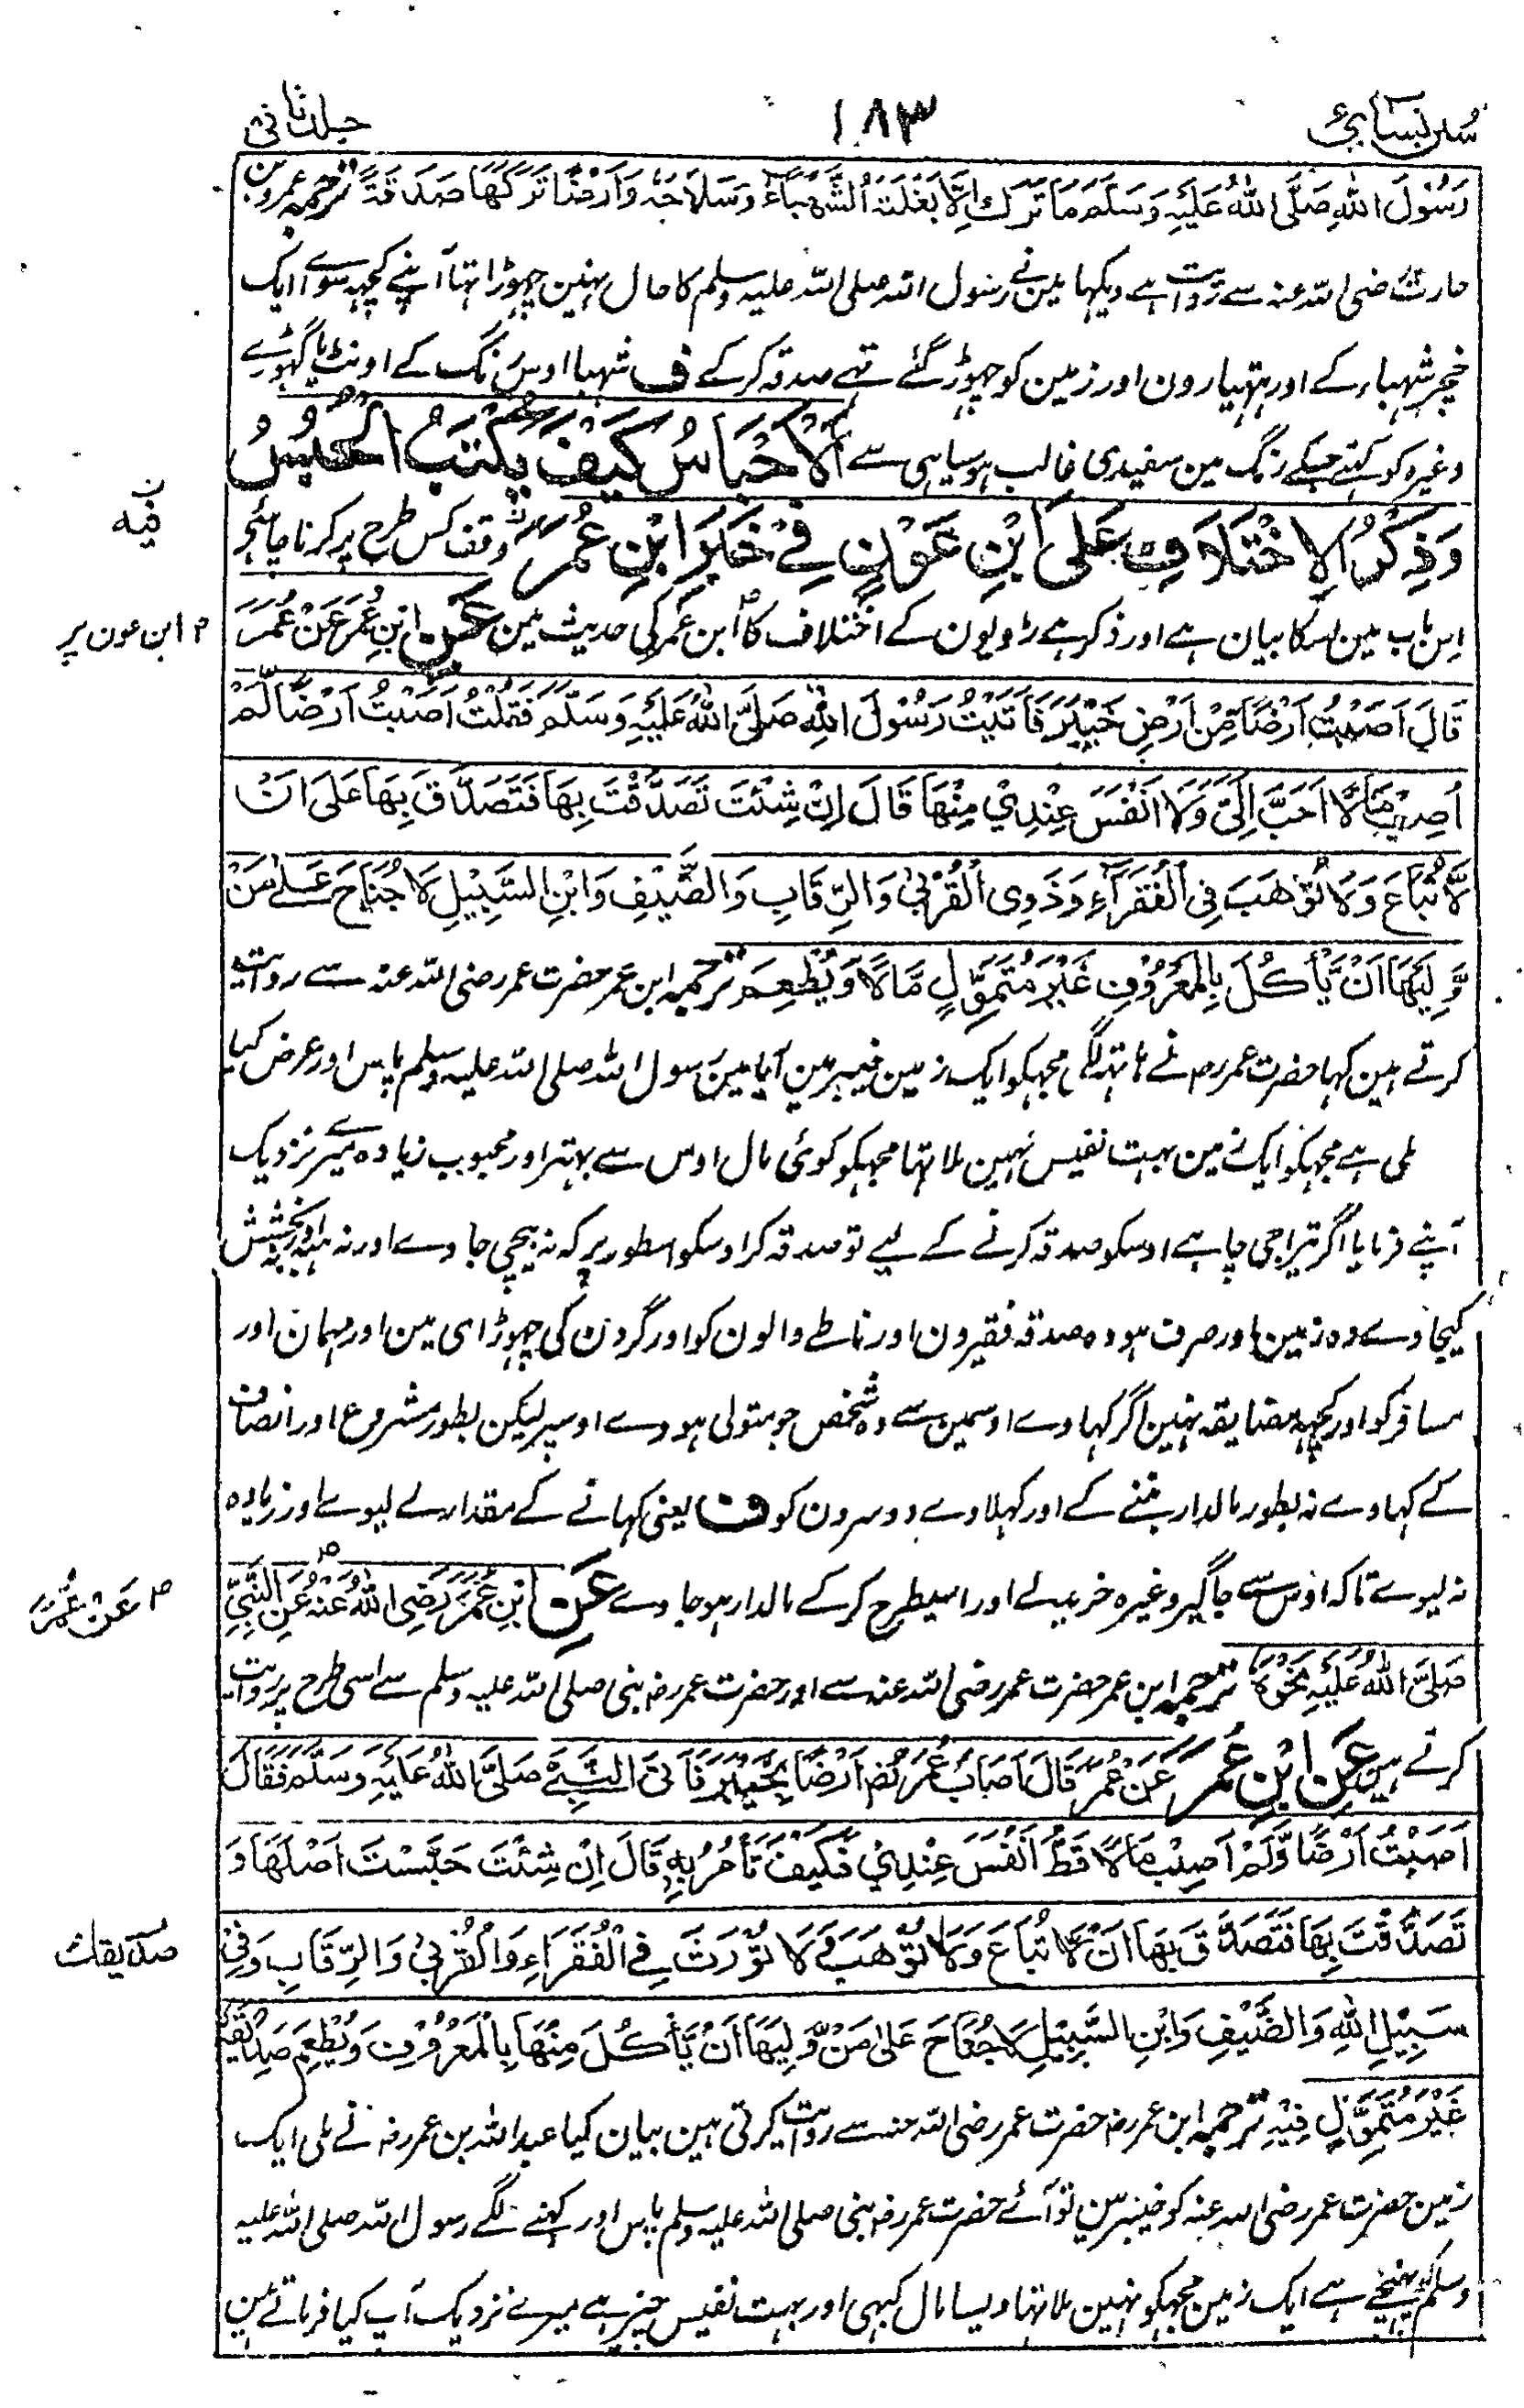 سنن نسائی
۱۸۳
جلد ثانی
رَسُوْلَ اللهِ صَلَّى اللهُ عَلَيْهِ وَسَلَّمَ مَا تَرَكَ اِلَّا بَغْلَتَهُ الشَّهْبَاءَ وَسِلَاحَهُ وَاَرْضًا تَرَكَهَا صَدَقَةً ترجمہ عمرو بن
حارث رضی اللہ عنہ سے روایت ہے دیکہا مین نے رسول اللہ صلی اللہ علیہ وسلم کا حال نہین چہوڑا تہا آپنے کچہہ سوائے ایک
خچر شہباء کے اور ہتہیارون اور زمین کو چہوڑ گئے تہے صدقہ کر کے ف شہبا اوس رنگ کے اونٹ یا گہوڑے
وغیرہ کو کہتے جسکے رنگ مین سفیدی غالب ہو سیاہی سے اَلْاَحْبَاسُ كَيْفَ يُكْتَبُ الْحُبُسُ
وَذِكْرُ الْاِخْتِلَافِ عَلَى ابْنِ عَوْنٍ فِيْ خَبَرِ ابْنِ عُمَرَ وقف کس طرح پر کرنا چاہئے
فیہ
اس باب مین اسکا بیان ہے اور ذکر ہے راویون کے اختلاف کا ابن عمر کی حدیث مین عَنِ ابْنِ عُمَرَ عَنْ عُمَرَ
م ابن عون پر
قَالَ اَصَبْتُ اَرْضًا مِّنْ اَرْضِ خَيْبَرَ فَاَتَيْتُ رَسُوْلَ اللهِ صَلَّى اللهُ عَلَيْهِ وَسَلَّمَ فَقُلْتُ اَصَبْتُ اَرْضًا لَّمْ
اُصِبْ مَالًا اَحَبَّ اِلَيَّ وَلَا اَنْفَسَ عِنْدِيْ مِنْهَا قَالَ اِنْ شِئْتَ تَصَدَّقْتَ بِهَا فَتَصَدَّقَ بِهَا عَلَى اَنْ
لَّا تُبَاعَ وَلَا تُوْهَبَ فِى الْفُقَرَآءِ وَذَوِى الْقُرْبٰى وَالرِّقَابِ وَالضَّيْفِ وَابْنِ السَّبِيْلِ لَا جُنَاحَ عَلٰى مَنْ
وَّلِيَهَا اَنْ يَّأْكُلَ بِالْمَعْرُوْفِ غَيْرَ مُتَمَوِّلٍ مَّالًا وَيُطْعِمَ ترجمہ ابن عمر حضرت عمر رضی اللہ عنہ سے روایت
کرتے ہین کہا حضرت عمر رض نے ہاتہہ لگی مجہکو ایک زمین خیبر مین آیا مین رسول اللہ صلی اللہ علیہ وسلم پاس اور عرض کیا
ملی ہے مجہکو ایک زمین بہت نفیس نہین ملا تہا مجہکو کوئی مال اوس سے بہتر اور محبوب زیادہ میرے نزدیک
آپنے فرمایا اگر تیرا جی چاہے اوسکو صدقہ کرنے کے لیے تو صدقہ کر اوسکو اسطور پر کہ نہ بیچی جاوے اور نہ ہبہ اور بخشش
کیجاوے وہ زمین اور صرف ہو وہ صدقہ فقیرون اور ناطے والون کو اور گردن کی چہوڑائی مین اور مہمان اور
مسافر کو اور کچہہ مضایقہ نہین اگر کہاوے اوسمین سے وہ شخص جو متولی ہووے اوسپر لیکن بطور مشروع اور انصاف
کے کہاوے نہ بطور مالدار بننے کے اور کہلاوے دوسرون کو ف یعنی کہانے کے مقدار لے لیوے اور زیادہ
نہ لیوے تاکہ اوس سے جاگیر وغیرہ خریدلے اور اسیطرح کر کے مالدار ہو جاوے عَنِ ابْنِ عُمَرَ رَضِيَ اللهُ عَنْهُ عَنِ النَّبِيِّ
م عَنْ عُمَرَ
صَلَّى اللهُ عَلَيْهِ نَحْوَهُ ترجمہ ابن عمر حضرت عمر رضی اللہ عنہ سے اور حضرت عمر رض نبی صلی اللہ علیہ وسلم سے اسی طرح پر روایت
کرتے ہین عَنِ ابْنِ عُمَرَ عَنْ عُمَرَ قَالَ اَصَابَ عُمَرُ رض اَرْضًا بِخَيْبَرَ فَاَتَى النَّبِيَّ صَلَّى اللهُ عَلَيْهِ وَسَلَّمَ فَقَالَ
اَصَبْتُ اَرْضًا وَّلَمْ اُصِبْ مَالًا قَطُّ اَنْفَسَ عِنْدِيْ فَكَيْفَ تَأْمُرُ بِهٖ قَالَ اِنْ شِئْتَ حَبَّسْتَ اَصْلَهَا وَ
تَصَدَّقْتَ بِهَا فَتَصَدَّقَ بِهَا اَنْ لَّا تُبَاعَ وَلَا تُوْهَبَ وَ لَا تُوْرَثَ فِي الْفُقَرَاءِ وَالْقُرْبٰى وَالرِّقَابِ وَفِيْ
صديقا
سَبِيْلِ اللهِ وَالضَّيْفِ وَابْنِ السَّبِيْلِ لَا جُنَاحَ عَلٰى مَنْ وَّلِيَهَا اَنْ يَّأْكُلَ مِنْهَا بِالْمَعْرُوْفِ وَيُطْعِمَ صَدِيْقَهُ
غَيْرَ مُتَمَوِّلٍ فِيْهِ ترجمہ ابن عمر رض حضرت عمر رضی اللہ عنہ سے روایت کرتی ہین بیان کیا عبد اللہ بن عمر رض نے ملی ایک
زمین حضرت عمر رضی اللہ عنہ کو خیبر مین تو آئے حضرت عمر رض نبی صلی اللہ علیہ وسلم پاس اور کہنے لگے رسول اللہ صلی اللہ علیہ
وسلم کو پہنچے ہے ایک زمین مجہکو نہین ملا تہا ویسا مال کبہی اور بہت نفیس چیز ہے میرے نزدیک آپ کیا فرماتے ہین